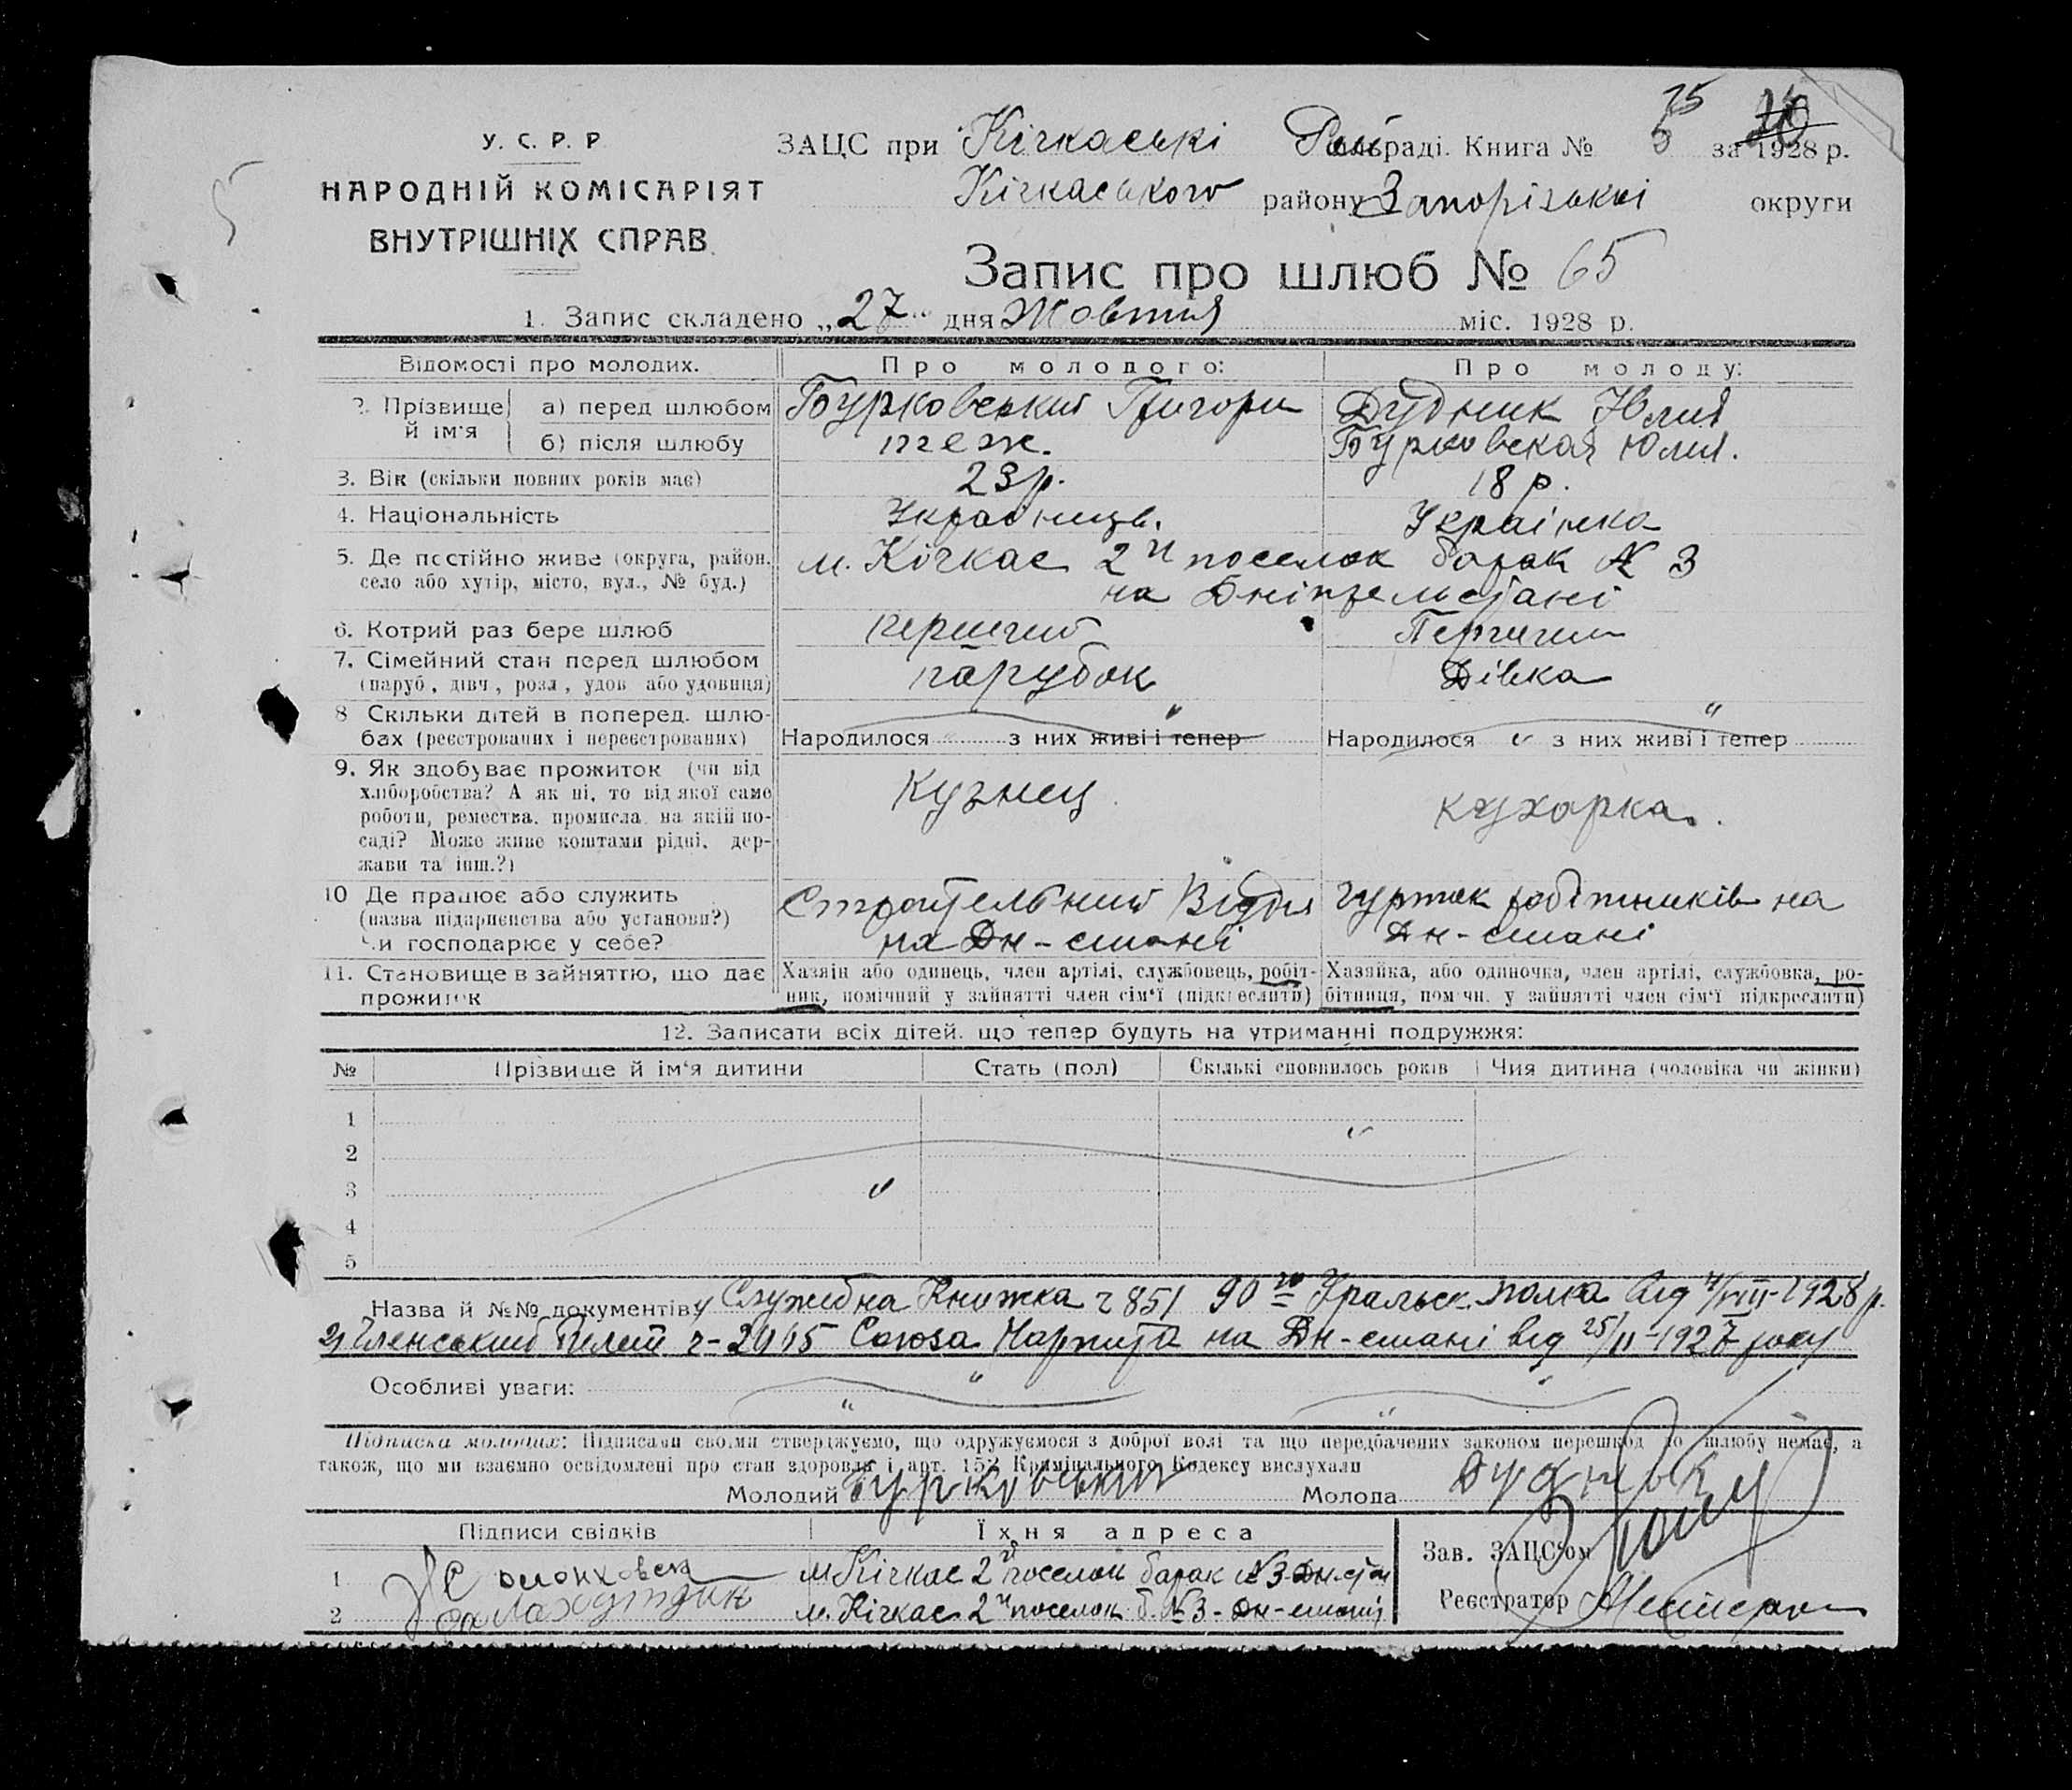 75 20
У. С. Р. Р
НАРОДНІЙ КОМІСАРІЯТ
ВНУТРІШНІХ СПРАВ
ЗАЦС при Кічкаські Рай сільраді. Книга № 5 за 1928 р.
Кічкаського району Запорізької округи
Запис про шлюб № 65
1. Запис складено „27" дня Жовтня міс. 1928 р.
Відомості про молодих. Про молодого: Про молоду:
2. Прізвище й ім'я
а) перед шлюбом Бурковський Григорий Дудник Юлия
б) після шлюбу теж. Бурковская Юлия.
3. Вік (скільки повних років має) 23 р. 18 р.
4. Національність Украінець. Украінка
5. Де постійно живе (округа, район, м. Кічкас 2й поселок барак № 3
село або хутір, місто, вул., № буд.) на Дніпрельстані
6. Котрий раз бере шлюб перший Перший
7. Сімейний стан перед шлюбом парубок Дівка
(паруб, дівч, розл, удов або удовиця)
8 Скільки дітей в поперед. шлю-
бах (реєстрованих і нереєстрованих) Народилося з них живі і тепер Народилося " з них живі і тепер
9. Як здобуває прожиток (чи від
хліборобства? А як ні, то від якої саме
роботи, ремества, промисла, на якій по-
саді? Може живе коштами рідні, дер-
жави та інш.?)
Кузнец кухарка.
10 Де працює або служить Строительний Відділ гурток робітників на
(назва підприємства або установи?) на Дн-стані Дн-стані
Чи господарює у себе?
11. Становище в зайняттю, що дає прожиток
Хазяїн або одинець, член артілі, службовець, робіт-
ник, помічний у зайнятті член сім'ї (підкреслити)
Хазяйка, або одиночка, член артілі, службовка, ро-
бітниця, пом чн. у зайнятті член сім'ї підкреслити)
12. Записати всіх дітей, що тепер будуть на утриманні подружжя:
№ Прізвище й ім'я дитини Стать (пол) Скількі сповнилось років Чия дитина (чоловіка чи жінки)
1
2
3
4
5
Назва й №№ документів: Службна Книжка ч 851 90го Уральск. полка від 4/VIII-1928 р.
2) Членський Білет ч-2915 Союза Нарпита на Дн-стані від 25/II-1927 року
Особливі уваги:
Підписка молодих: Підписами своіми стверджуємо, що одружуємося з доброї волі та що передбачених законом перешкод до шлюбу немає, а
також, що ми взаємно освідомлені про стан здоровля і арт. 152 Кримінального Кодексу вислухали
Молодий Бурковський Молода Дудник
Підписи свідків Їхня адреса
1 м Кічкас 2й поселок барак № 3 Дн-стан
2 м. Кічкас 2й поселок б. № 3 - Дн-стані
Зав. ЗАЦС'ом
Реєстратор